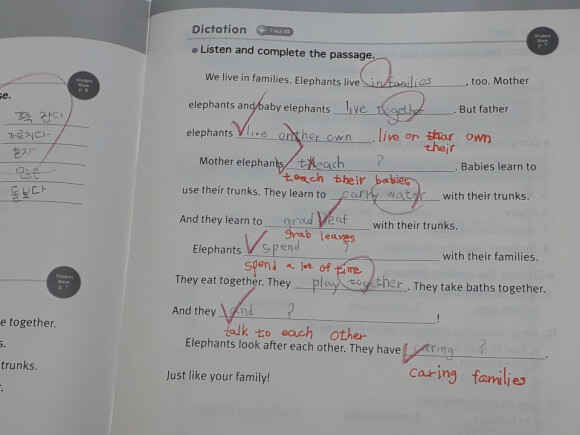 Dictation Track 03
Student Book p. 7
Listen and complete the passage.
We live in families. Elephants live in families, too. Mother
elephants and baby elephants live together. But father
elephants live on ther own. live on their own
their
Mother elephants teach ? . Babies learn to
teach their babies
use their trunks. They learn to carry water with their trunks.
And they learn to grad leaf with their trunks.
grab leaves
Elephants spend ? with their families.
spend a lot of time
They eat together. They play together. They take baths together.
And they and ? !
talk to each other
Elephants look after each other. They have caring ? .
caring families
Just like your family!
Student Book p. 6
se.
꽉 잡다
가르치다
혼자
많은
돌보다
Student Book p. 7
e together.
s.
trunks.
r.